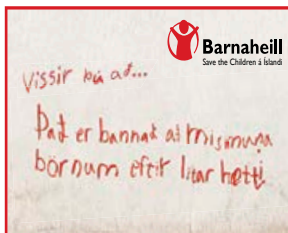 Barnaheill
Save the Children á Íslandi
Vissir þú að...
Það er bannað að mismuna
börnum eftir litarhætti